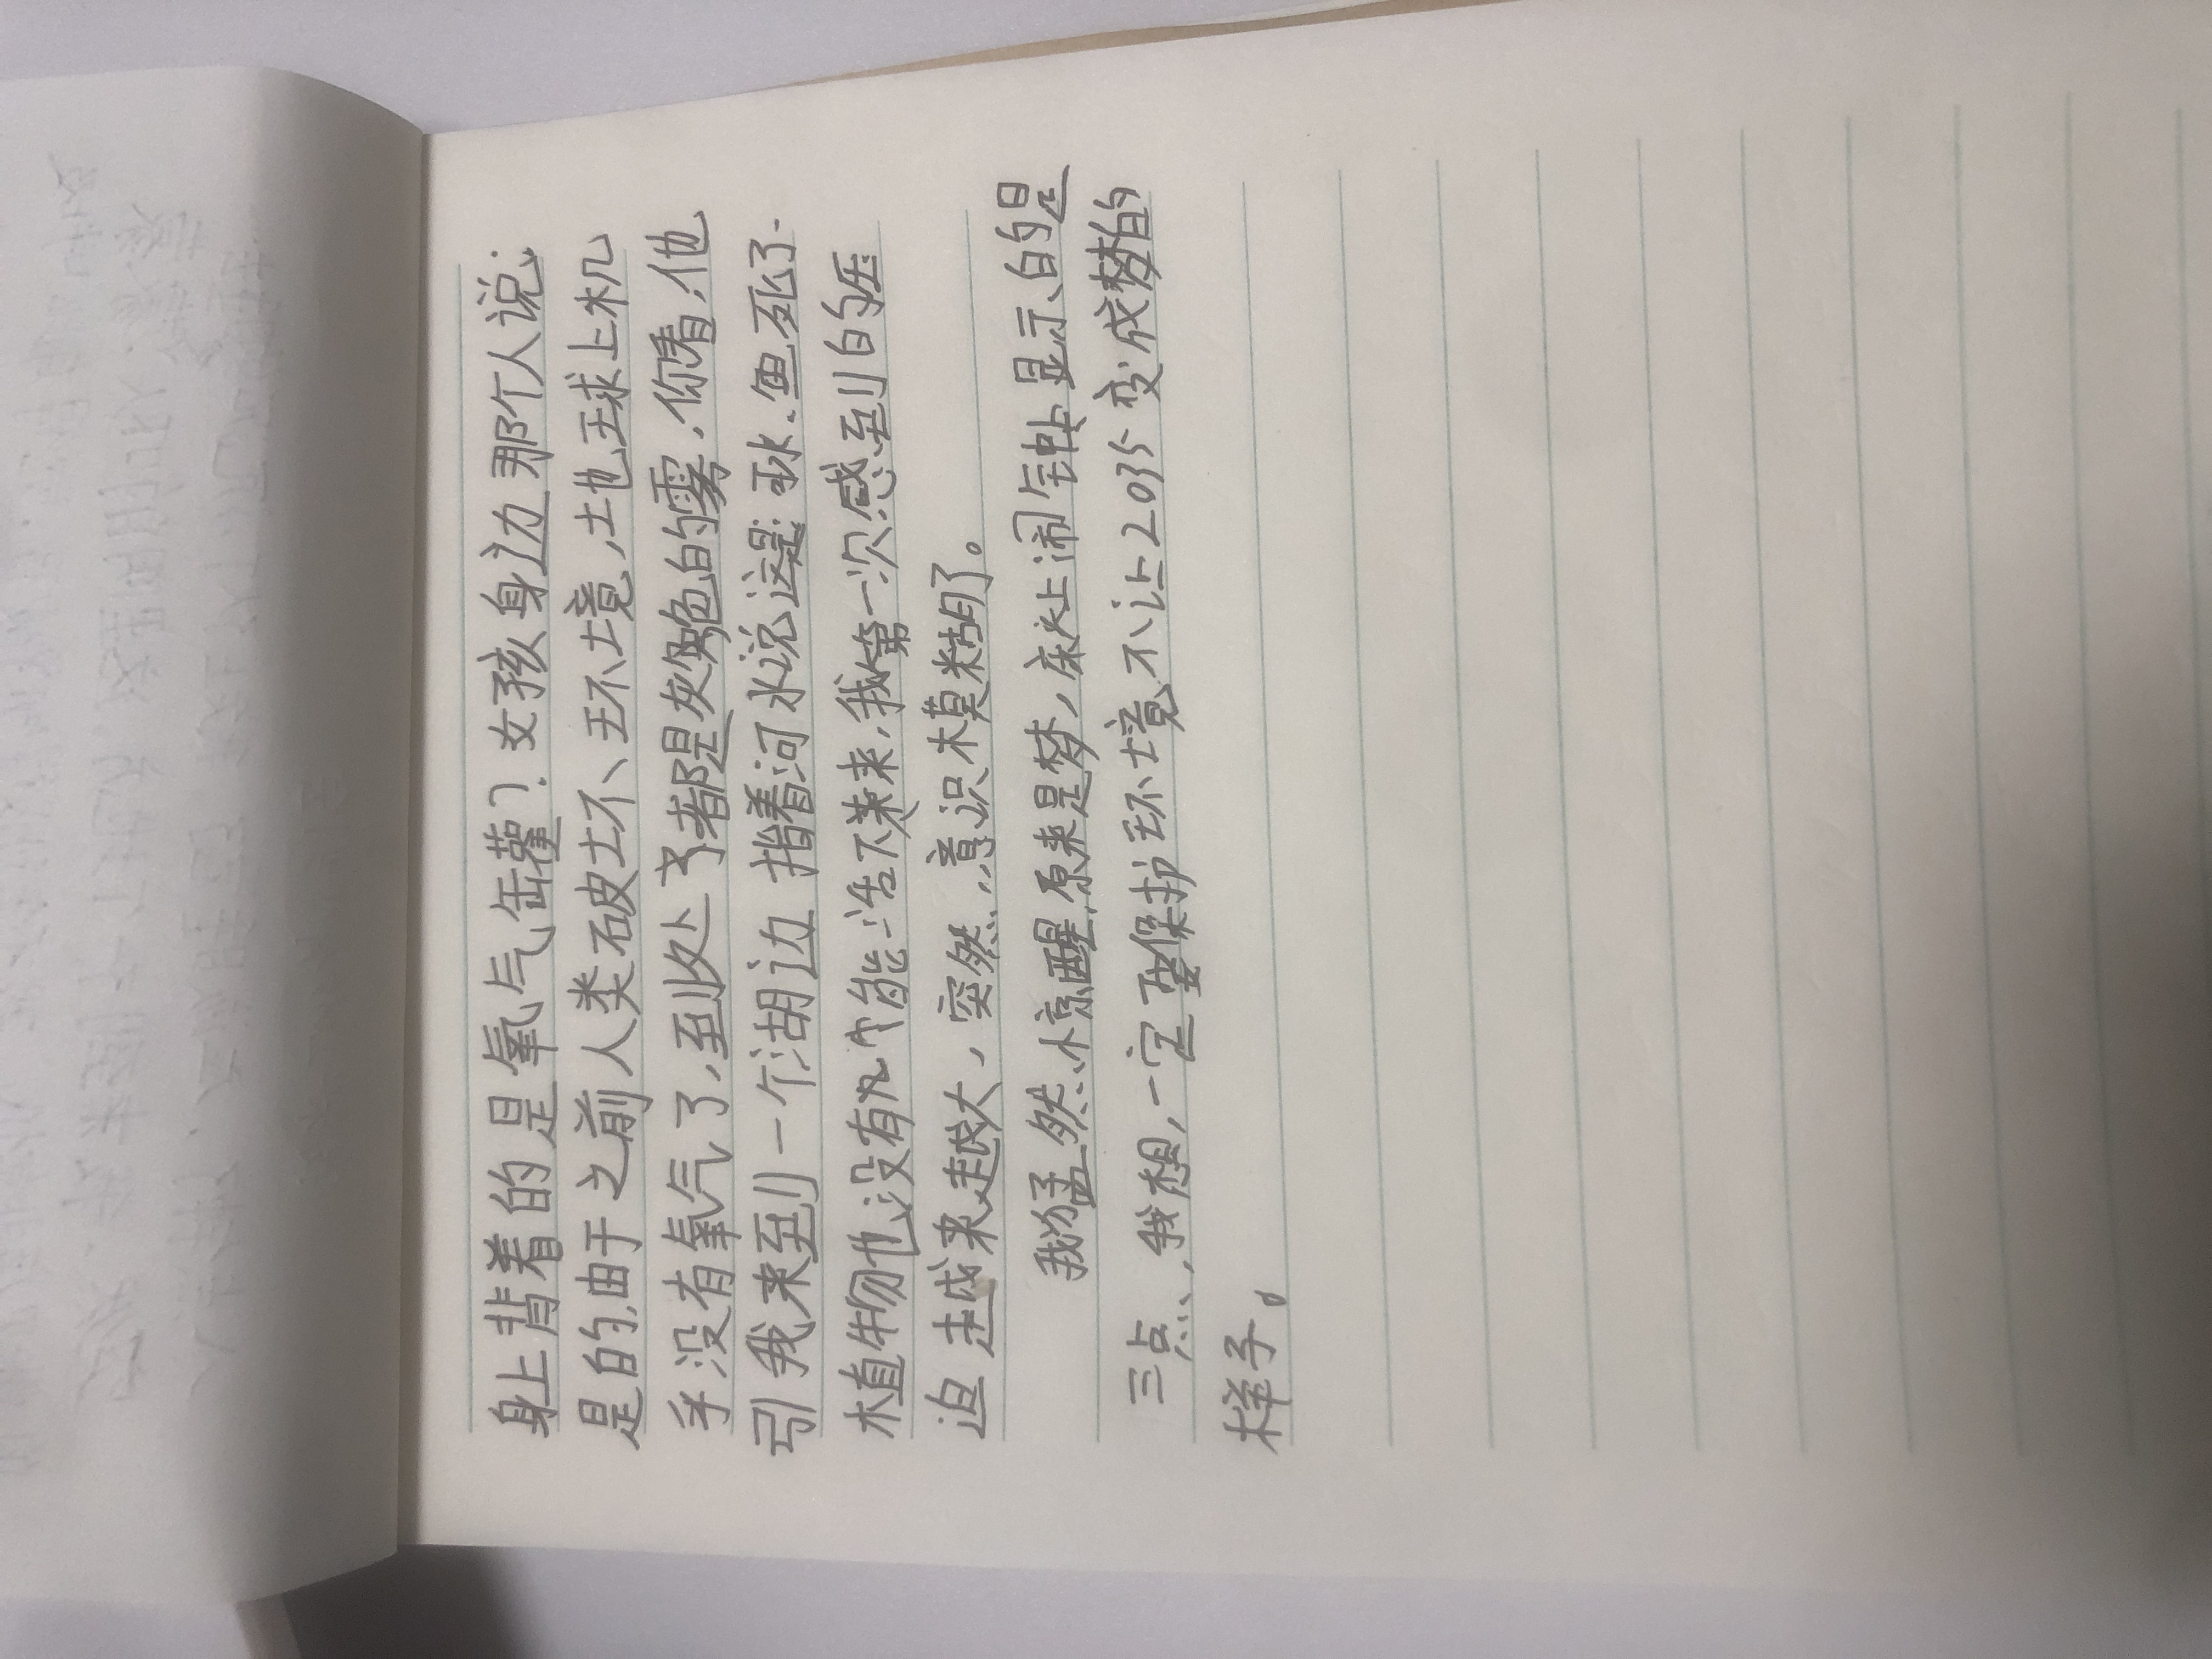 身上背着的是氧气缶罐？女孩身边那个人说：
是的，由于之前人类破坏环境，地球上机
乎没有氧气了，到处都是灰色的雾，你看，他
引我来到一个湖边指着河水说这是水，鱼死了
植物也没有几个能活下来，我第一次感到的压
迫越来越大，突然，意识模糊了。
我猛然惊醒，原来是梦，床上闹钟显示的是
三点，我想，一定要保护环境不让2035变成梦的
样子。